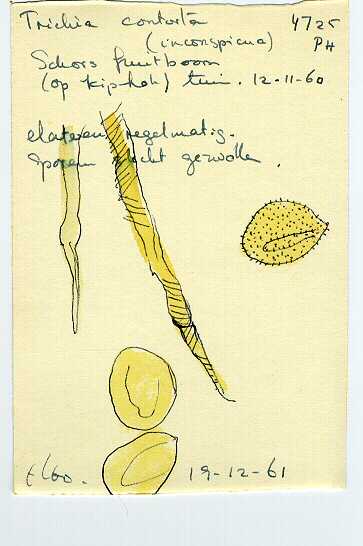 Trichia contorta 4725
(inconspicua) PH
Schors fruitboom
(op kiphok) tuin. 12-11-60
elateren regelmatig.
Sporen slecht gezwollen.
Elbo. 19-12-61